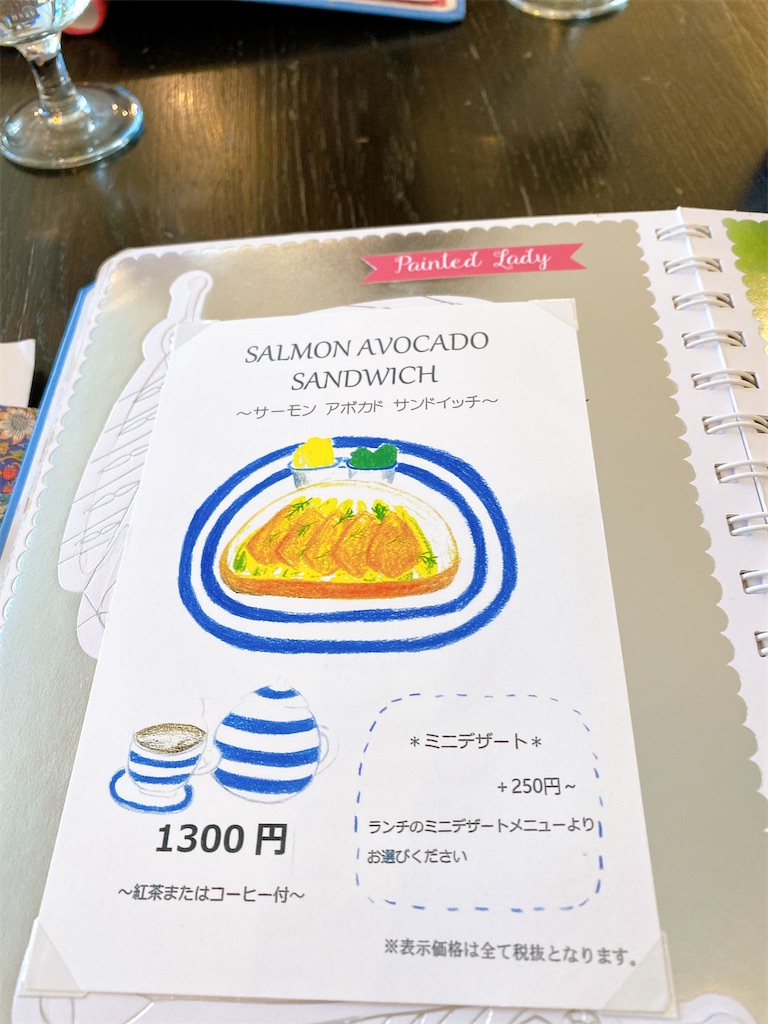 Painted Lady
SALMON AVOCADO
SANDWICH
～サーモン アボカド サンドイッチ～
＊ミニデザート＊
+250円～
ランチのミニデザートメニューより
お選びください
1300 円
～紅茶またはコーヒー付～
※表示価格は全て税抜となります。